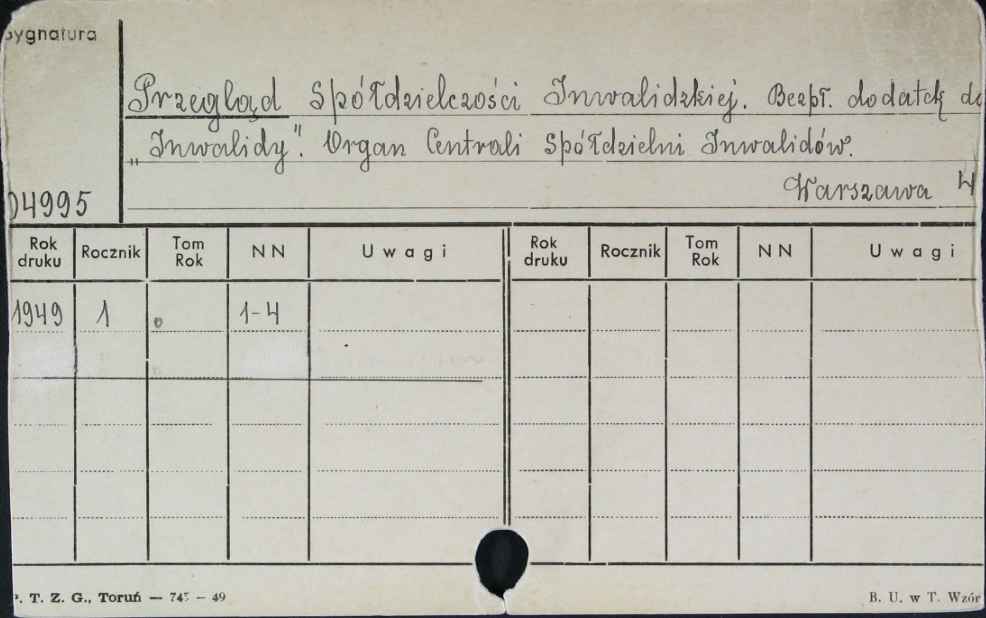 Sygnatura
Przegląd Spółdzielczości Inwalidzkiej. Bezpł. dodatek do
„Inwalidy". Organ Centrali Spółdzielni Inwalidów.
Warszawa 4
04995
Rok druku Rocznik Tom Rok NN Uwagi Rok druku Rocznik Tom Rok NN Uwagi
1949 1 1-4
P. T. Z. G., Toruń — 745 — 49 B. U. w T. Wzór